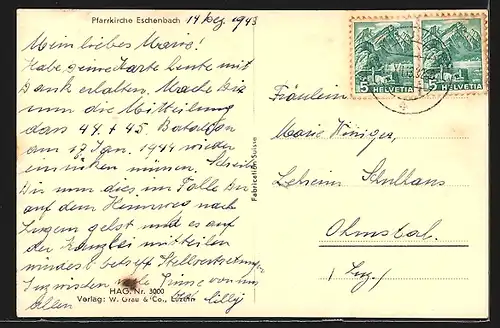 Pfarrkirche Eschenbach 14 Dez. 1943
Mein liebes Marie!
Habe Deine Karte heute mit
Dank erhalten. Mache Dir
nun die Mitteilung
dass 44. + 45. Bataljon
am 17 Jan. 1944 wieder
einrücken müssen. Schreibe
Dir nun dies im Falle Du
auf dem Heimweg nach
Luzern gehst und es auf
der Kanzlei mitteilen
mindest betreff Stellvertretungen
Inzwischen viele Grüsse von uns
Allen Lilly
HAG. Nr. 3000
Verlag: W. Grau & Co., Luzern
Fabrication Suisse
5 HELVETIA
5 HELVETIA
Fräulein
Marie Winiger,
Lehrerin Schulhaus
Ohmstal.
(Luz.)